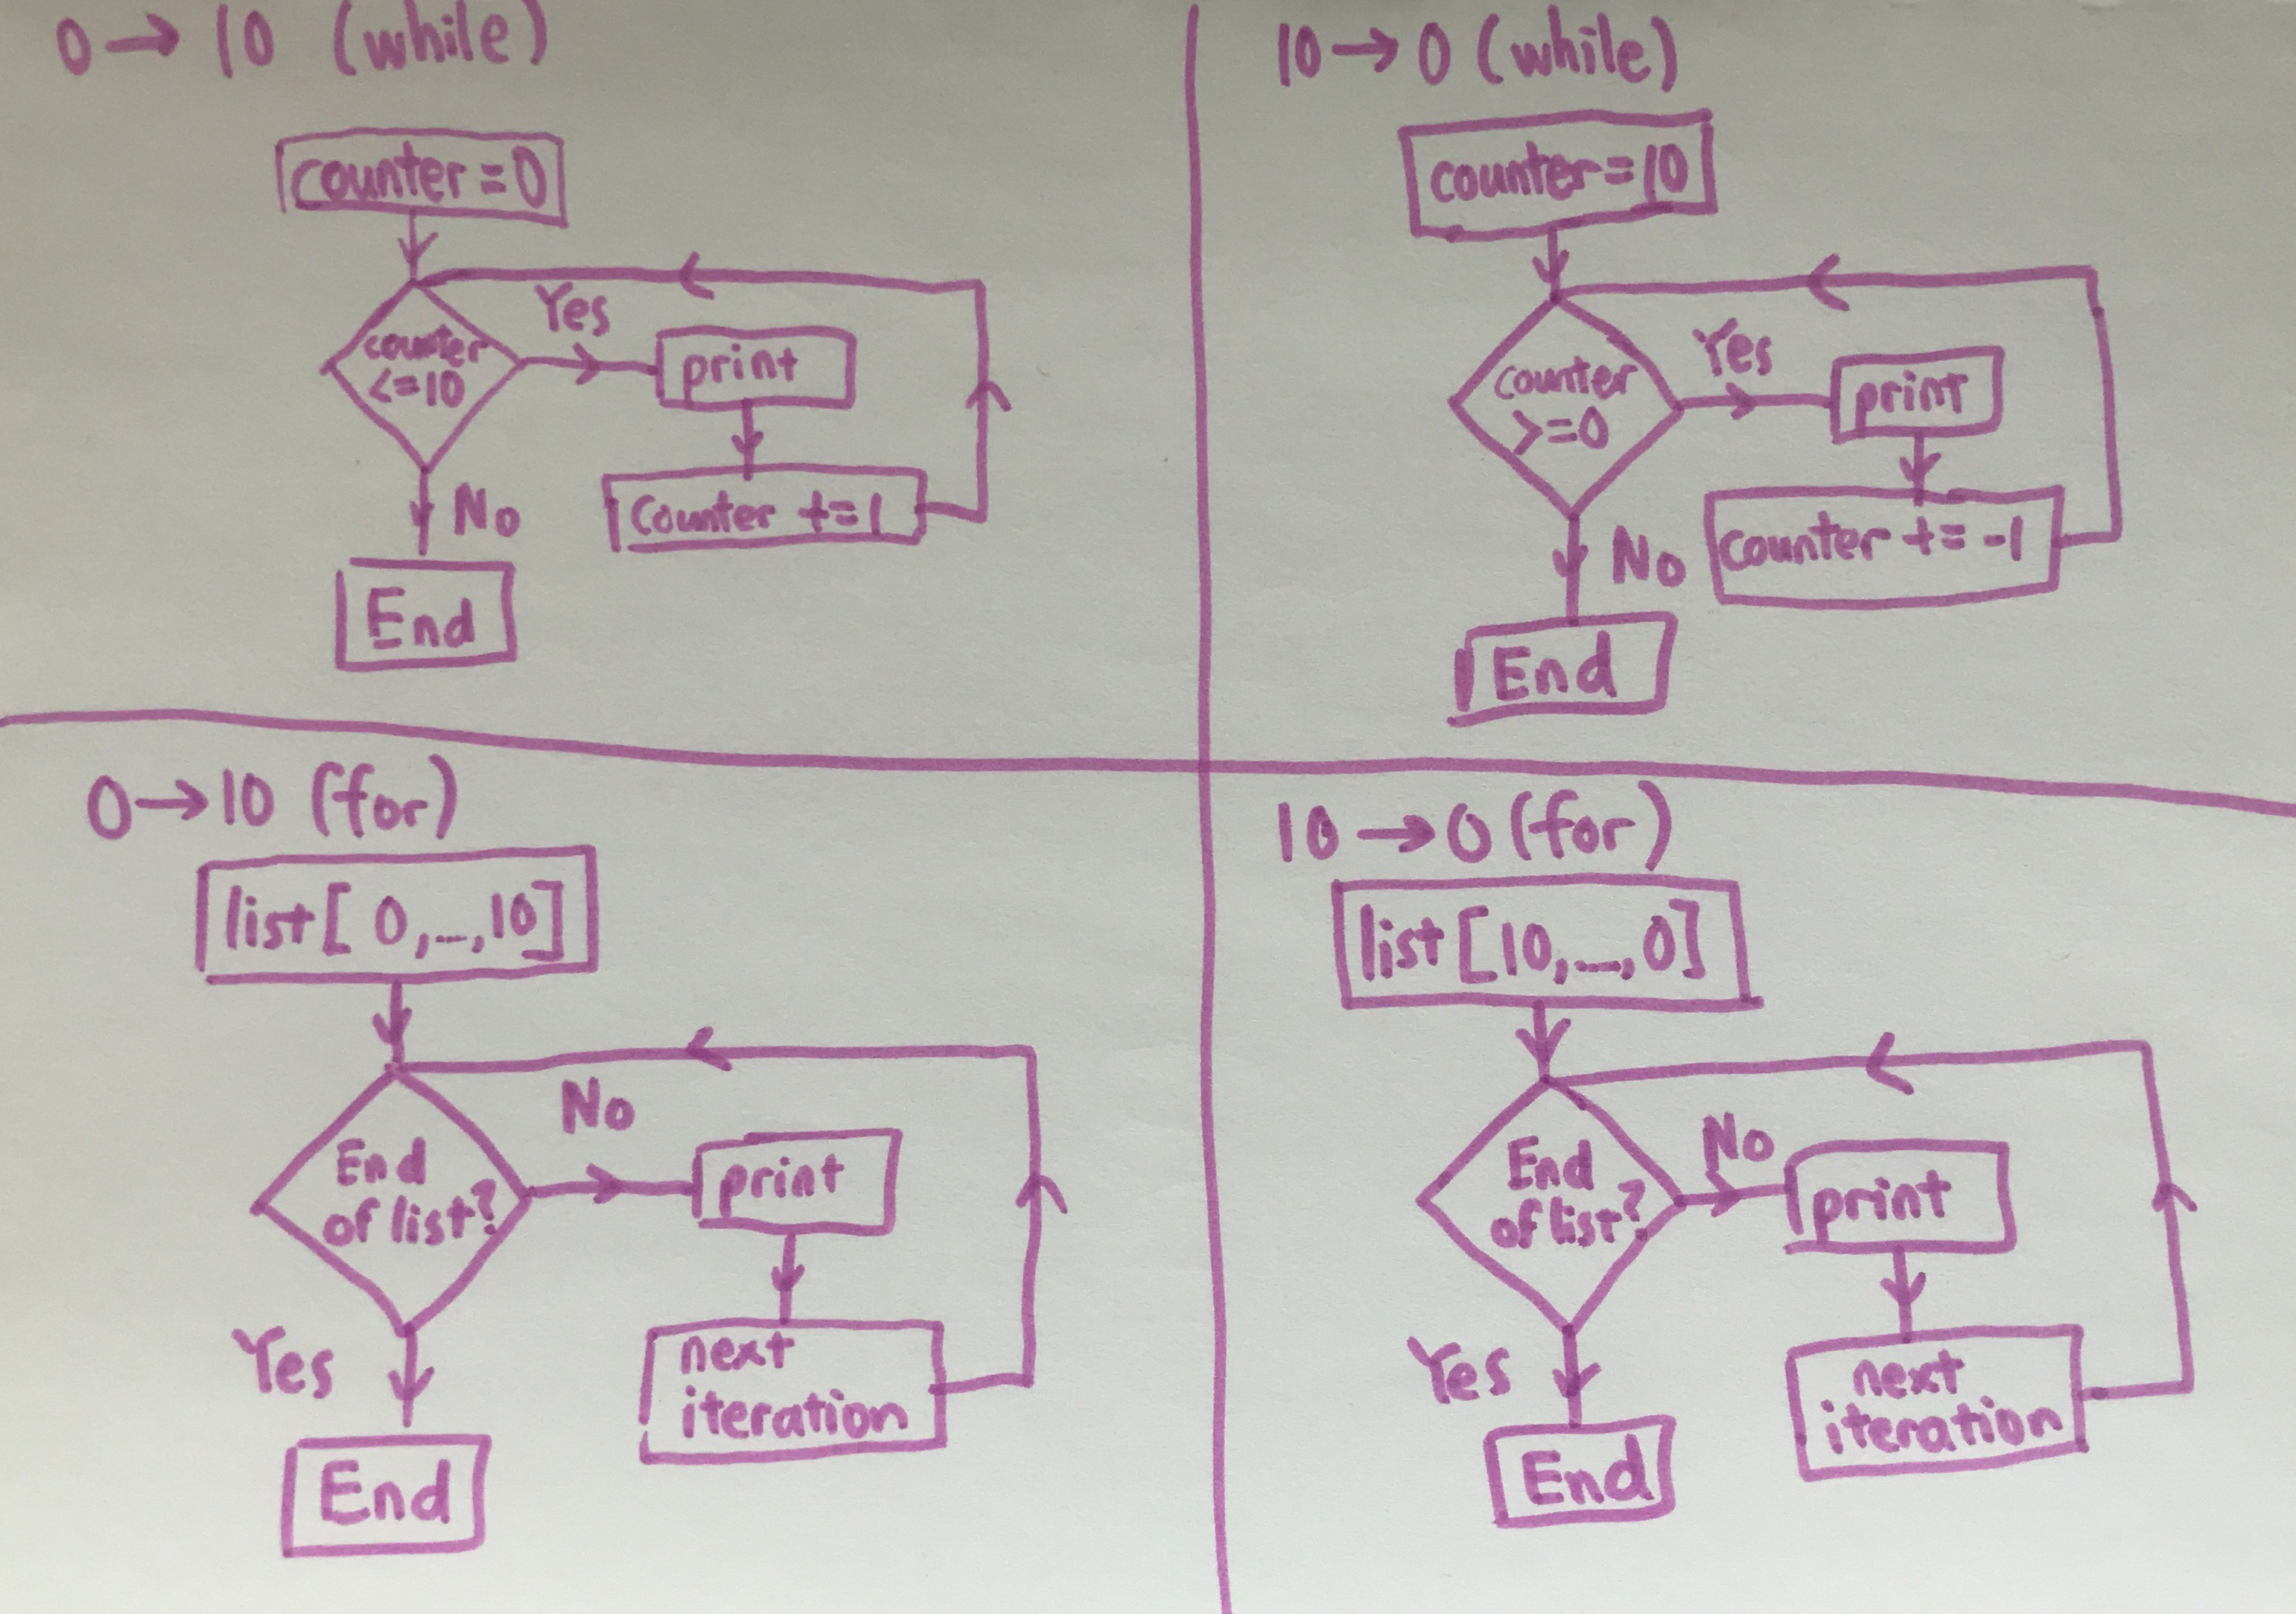 0 → 10 (while)
counter = 0
counter
<=10
Yes
print
counter +=1
No
End
10 → 0 (while)
counter=10
counter
>=0
Yes
print
counter += -1
No
End
0→10 (for)
list[ 0,...,10]
End
of list?
No
print
next
iteration
Yes
End
10 → 0 (for)
list [10,...,0]
End
of list?
No
print
next
iteration
Yes
End